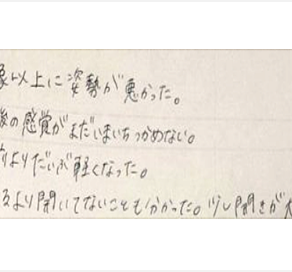 以上に姿勢が悪かった。
の感覚がまだいまいちつかめない。
よりだいぶ軽くなった。
より開いてないことも分かった。少し開きが